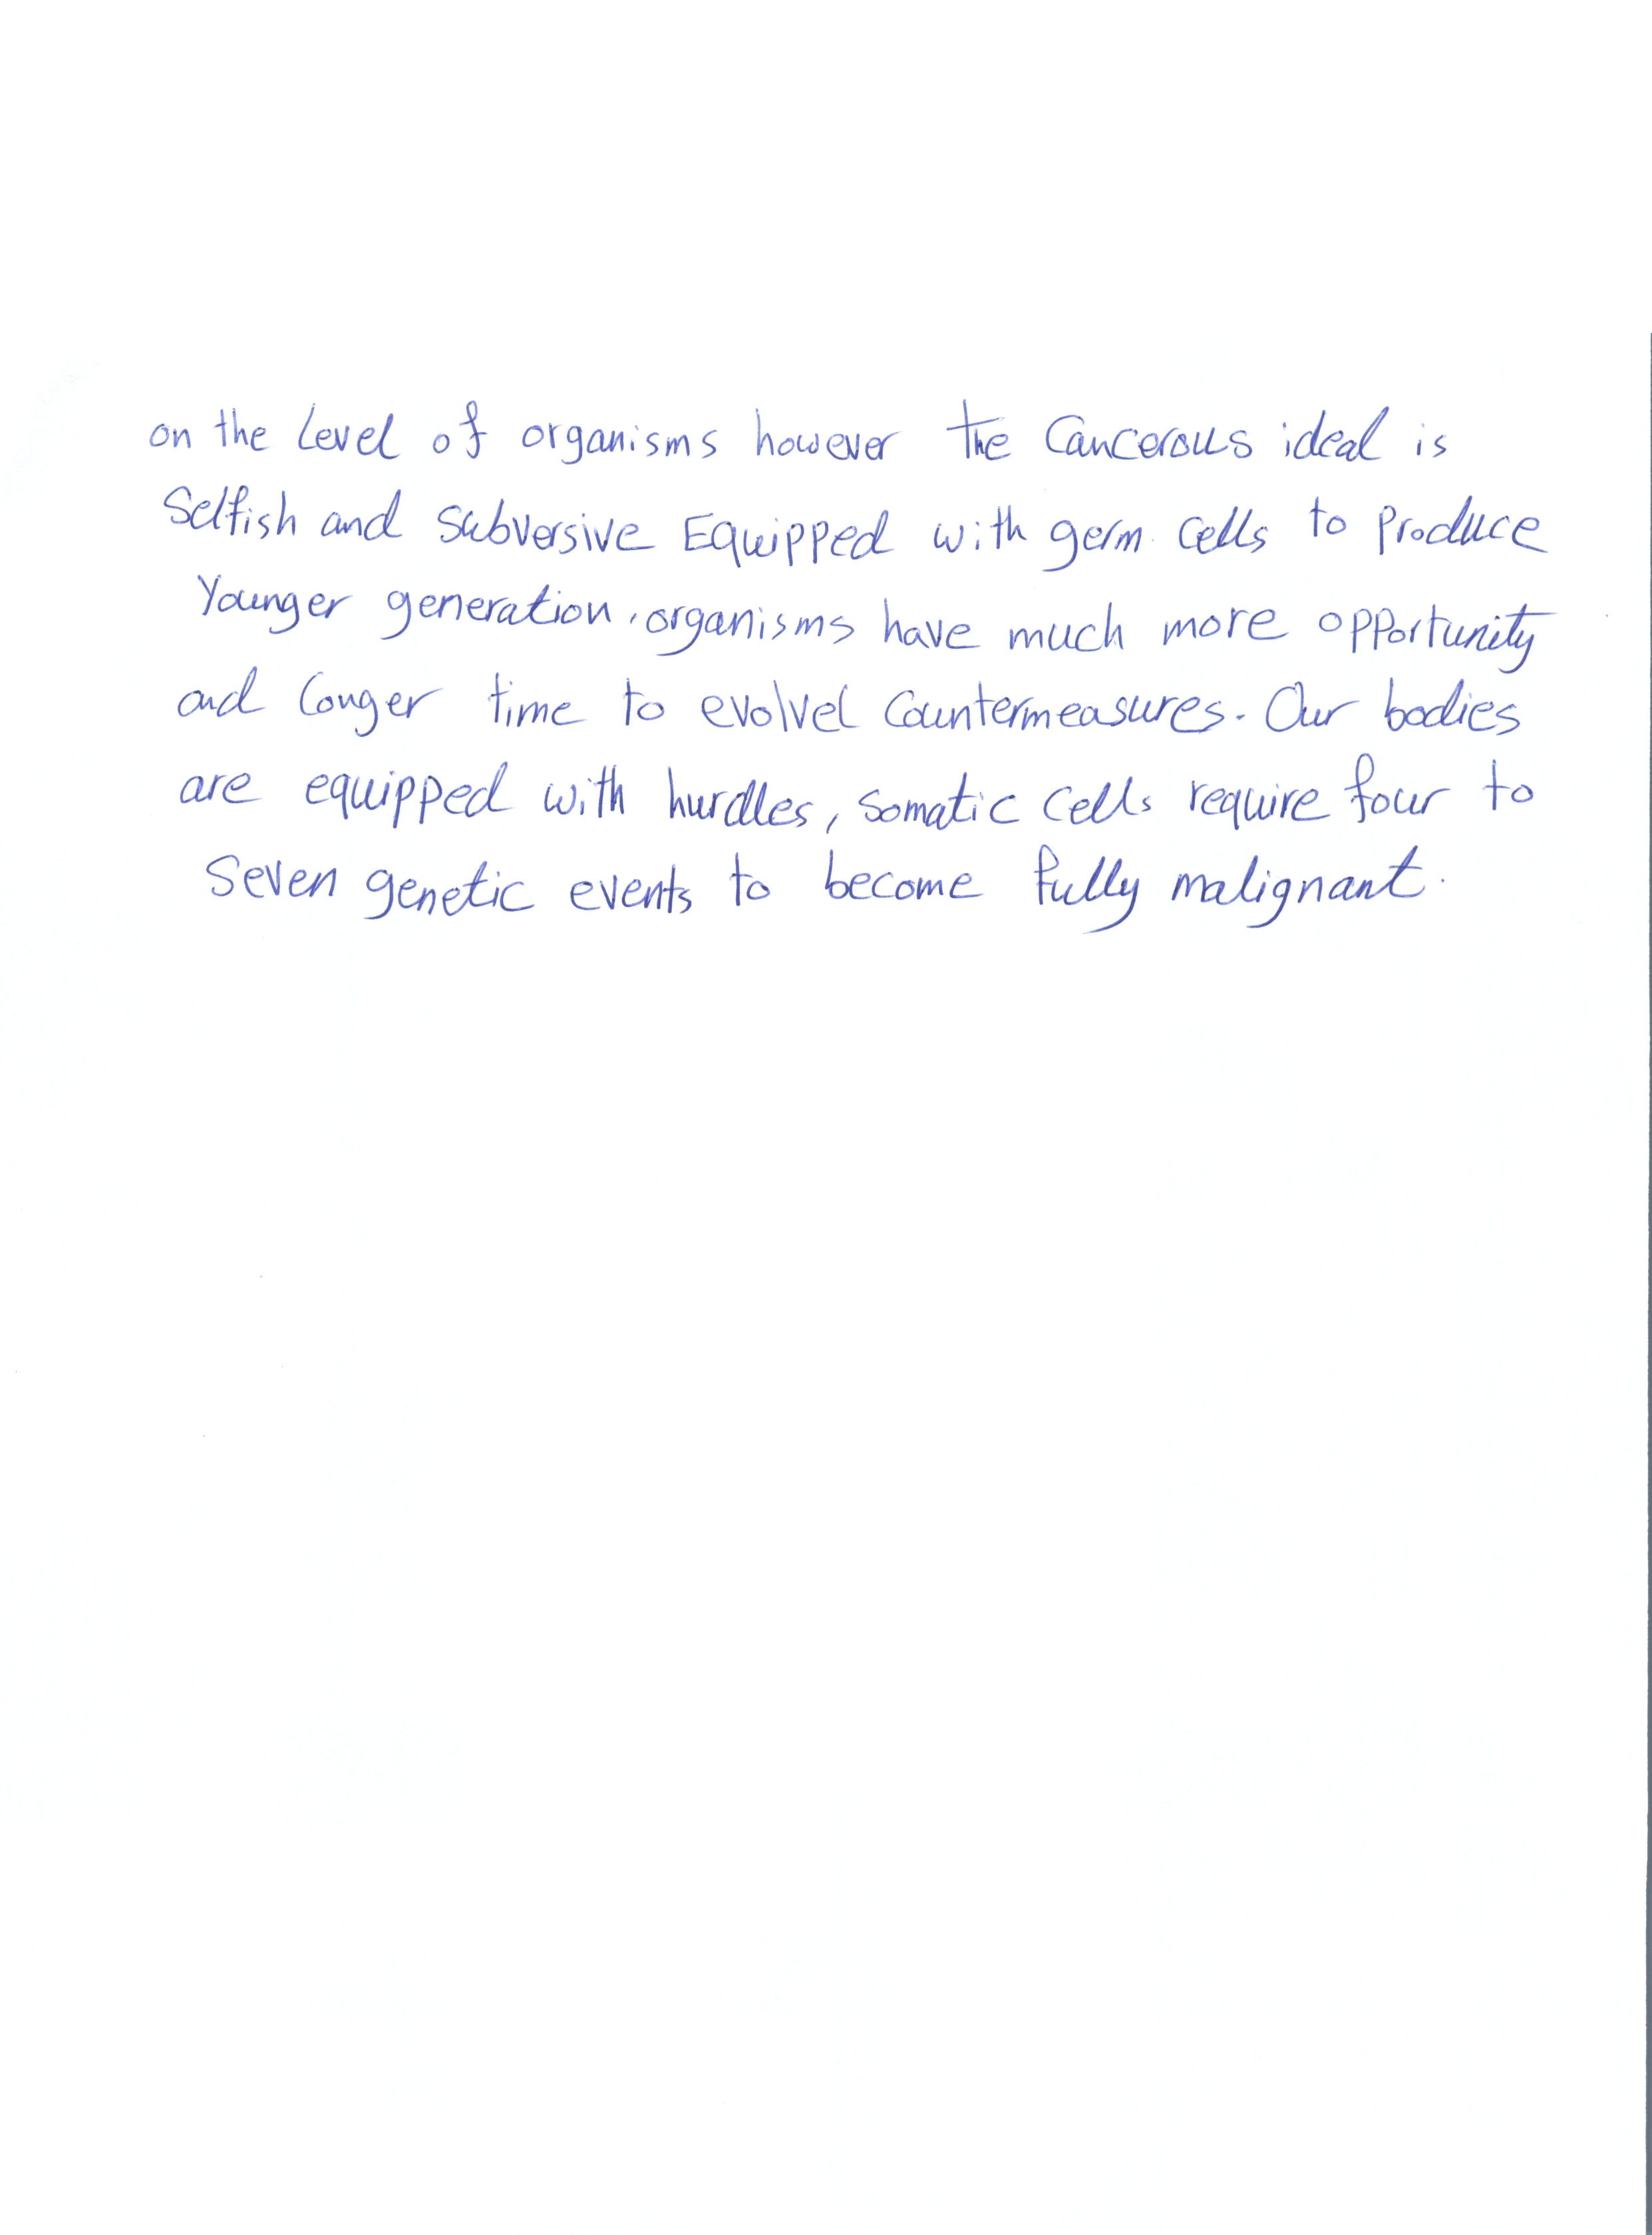 on the Level of organisms however the Cancerous ideal is
Selfish and subversive Equipped with germ cells to produce
Younger generation, organisms have much more opportunity
and longer time to evolvel Countermeasures. Our bodies
are equipped with hurdles, somatic cells require four to
Seven genetic events to become fully malignant.